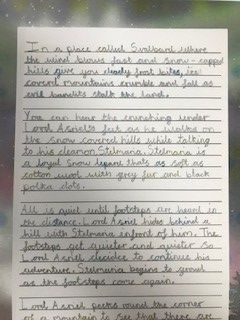 In a place called Svalbard where
the wind blows fast and snow-capped
hills give you deadly frost bites, ice
covered mountains crumble and fall as
evil bandits stalk the land.
You can hear the crunching under
Lord Asriel's feet as he walks on
the snow covered hills while talking
to his deamon Stelmaria. Stelmaria is
a loyal snow lepard thats as soft as
cotton wool with grey fur and black
polka dots.
All is quiet until footsteps are heard in
the distance. Lord Asriel hides behind a
hill with Stelmaria infront of him. The
footsteps get quieter and quieter so
Lord Asriel decides to continue his
adventure. Stelmaria begins to growl
as the footsteps come again.
Lord Asriel peeks round the corner
of a mountain to see that there are